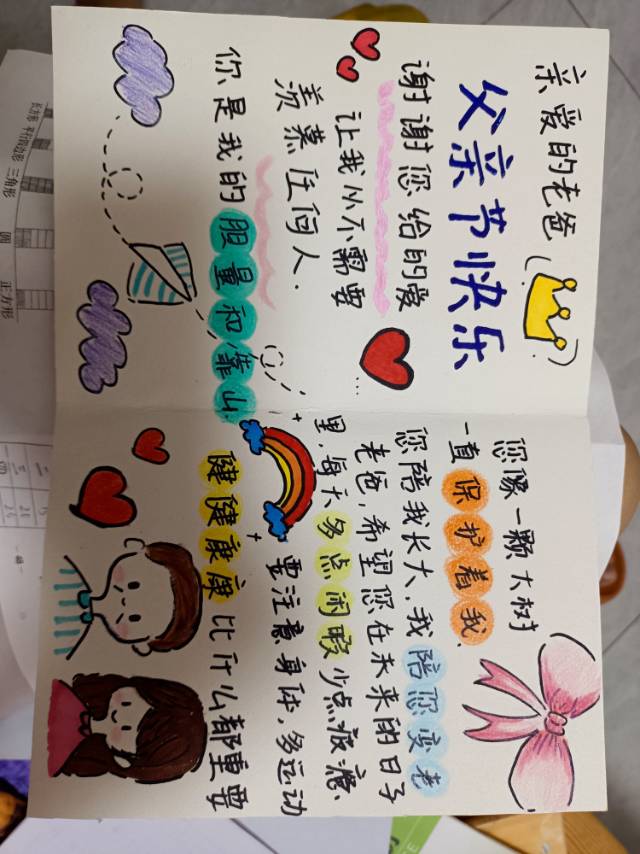 亲爱的老爸
父亲节快乐
谢谢您给的爱
让我从不需要
羡慕任何人.
你是我的胆量和靠山.
您像一颗大树
一直保护着我、
您陪我长大,我陪你变老
老爸,希望您在未来的日子
里,每天多点闲暇少点疲惫、
要注意身体,多运动
健健康康比什么都重要
长方形 平行四边形 三角形 圆 正方形